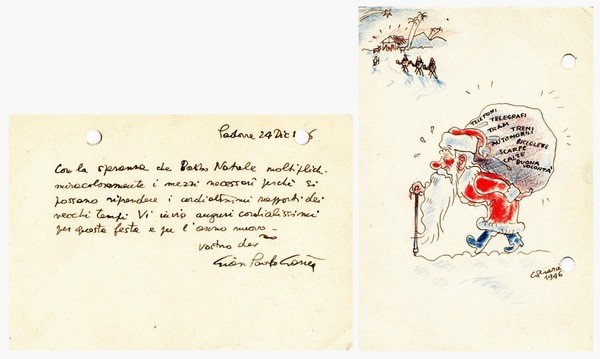 Padova 24 Dic 1 6
Con la speranza che Babbo Natale moltiplichi
miracolosamente i mezzi necessari perchè si
possano riprendere i cordialissimi rapporti dei
vecchi tempi Vi invio auguri cordialissimi
per questa festa e per l'anno nuovo
vostro dev
Gian Paolo
TELEFONI
TELEGRAFI
TRAM
TRENI
AUTOMOBILI
BICICLETTE
SCARPE
CALZE
BUONA
VOLONTÀ
1946